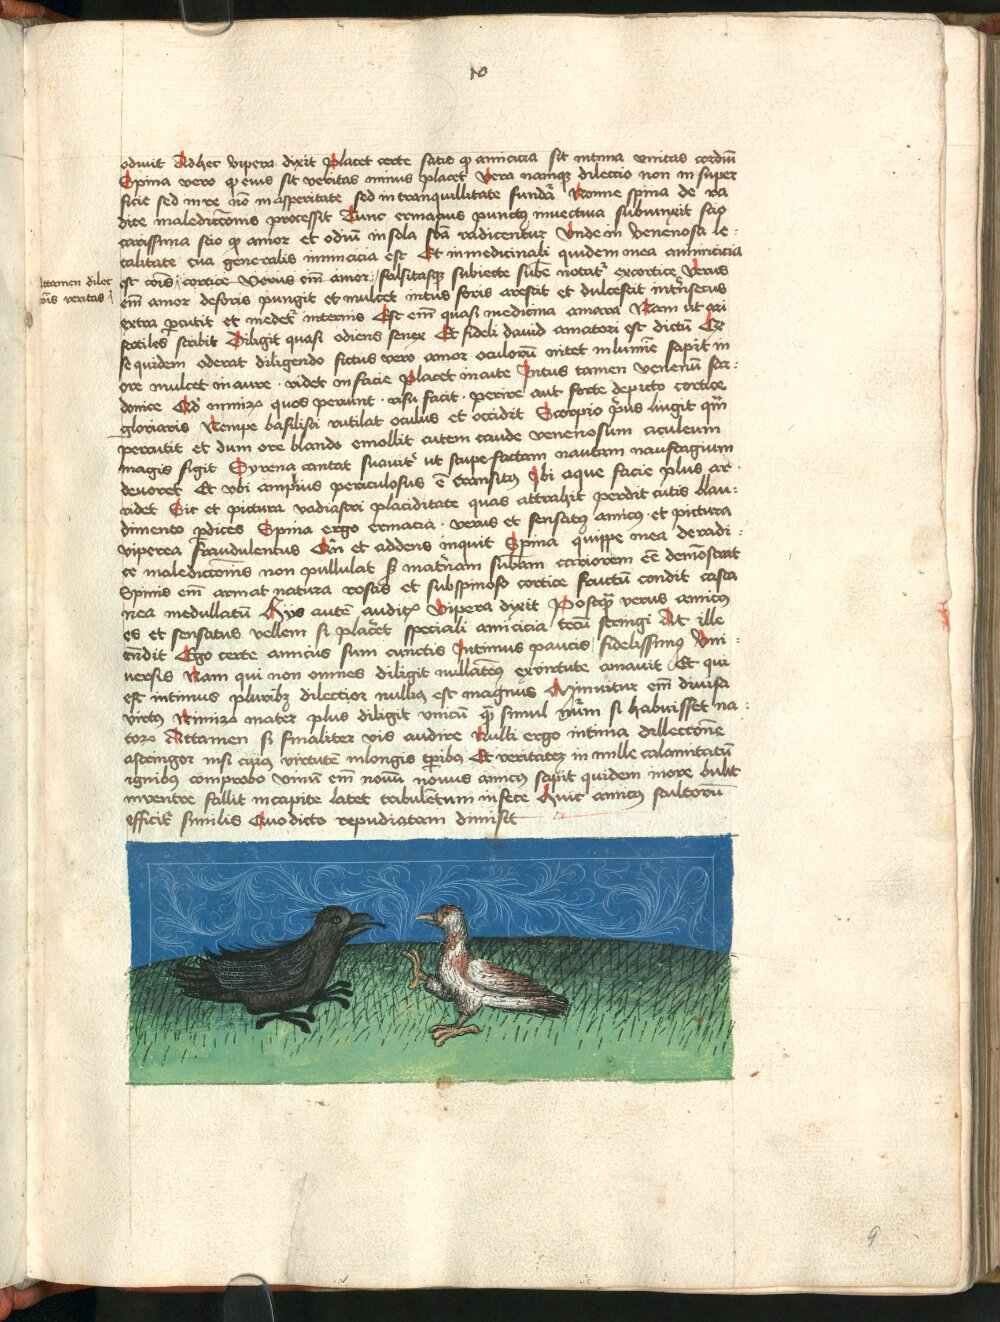 10
odiuit Ad hec vipera dixit Placet certe satis ꝙ amicicia sit intima vnitas cordiū
Spina vero ꝙ eius sit veritas minus placet Vera namqꝫ dileccio non in super
ficie sed in re nō in asperitate sed in tranquillitate fundāt Nonne spina de ra
dice malediccionis processit Tunc ermacius punctꝰ inuectiua subiunxit scio
carissima scio ꝙ amor et odiū in sola radicentur Vnde in venenosa le
talitate tua generalis inimicicia est Et in medicinali quidem mea amiciticia
Attamen dilec
cōis veritas
est cōis cortice Verus em̄ amor falsitasqꝫ subiecte notatʳ ex cortice Verus
em̄ amor deforis pungit et mulcet intus foris arescit et dulcescit intrīsecus
extra percutit et medetʳ internis Est em̄ quasi medicina amara Nam ut ari
stotiles scribit Diligit quasi odiens senex Et fideli dauid amatori est dictū Er
se quidem oderat diligendo fictus vero amor oculorū nitet in lumīe sapit in
ore mulcet in aure ridet in facie Placet in cute Intus tamen venenū
quos perunt risu facit perire aut forte deputo cortice
gloriaris Nempe basilisci rutilat oculus et occidit Scorpio prius lingit
percutit et dum ore blando emollit cutem caude venenosum aculeum
magis figit Syrena cantat suauitʳ ut stupefactam nautam naufragium
deuoret Et vbi amplius periculosus ē transitus Ibi aque facie plus ar
ridet Sic et pictura radiastri placiditate quas attrahit perdit cutis blan
dimento ꝓdices Spina ergo ermacia verus et sensatus amicꝰ et pictura
viperea fraudulentus et addens inquit Spina quippe mea de radi
ce malediccionis non pullulat sꝫ materiam subiectam cariorem eē demōstrat
Spinis em̄ armat natura rosas et sub spinoso cortice fructū condit casta
nea medullatū Hys autē auditis Vipera dixit Postqꝫ verus amicus
es et sensatus vellem si placet speciali amicicia tecū stringi At ille
rn̄dit Ego certe amicus sum cunctis Intimus paucis fidelissimus vni
uersis Nam qui non omnes diligit nullatenus ex virtute amauit Et qui
est intimus pluribꝫ dilectior nullius est magnus Minuitur em̄ diuisa
virtus Nimirū mater plus diligit vnicū qꝫ simul si habuisset na
torꝫ Attamen si finaliter vis audire Nulli ergo intima dilleccione
astringor nisi cuius virtutē in longis tꝑibꝫ Et veritatē in mille calamitatū
ignibꝫ comprobo vinū em̄ nouū nouus amicus sapit quidem in ore bulit
in ventre fallit in capite latet turbulētum in fece Huic amicus stultorū
efficitʳ similis Quo dicto repudiatam dimisit
9